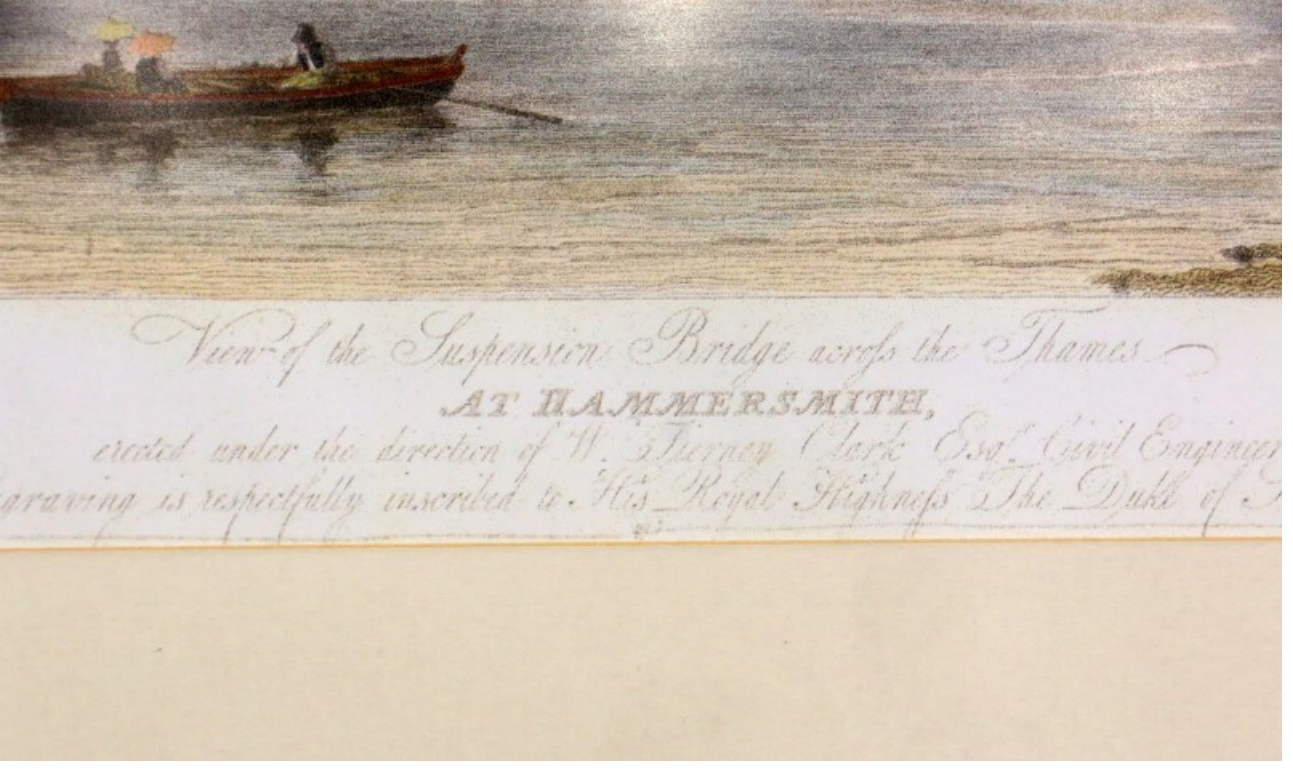 View of the Suspension Bridge acroſs the Thames
AT HAMMERSMITH,
erected under the direction of W. Tierney Clark Esqr. Civil Engineer
graving is respectfully inscribed to His Royal Highneſs The Duke of S